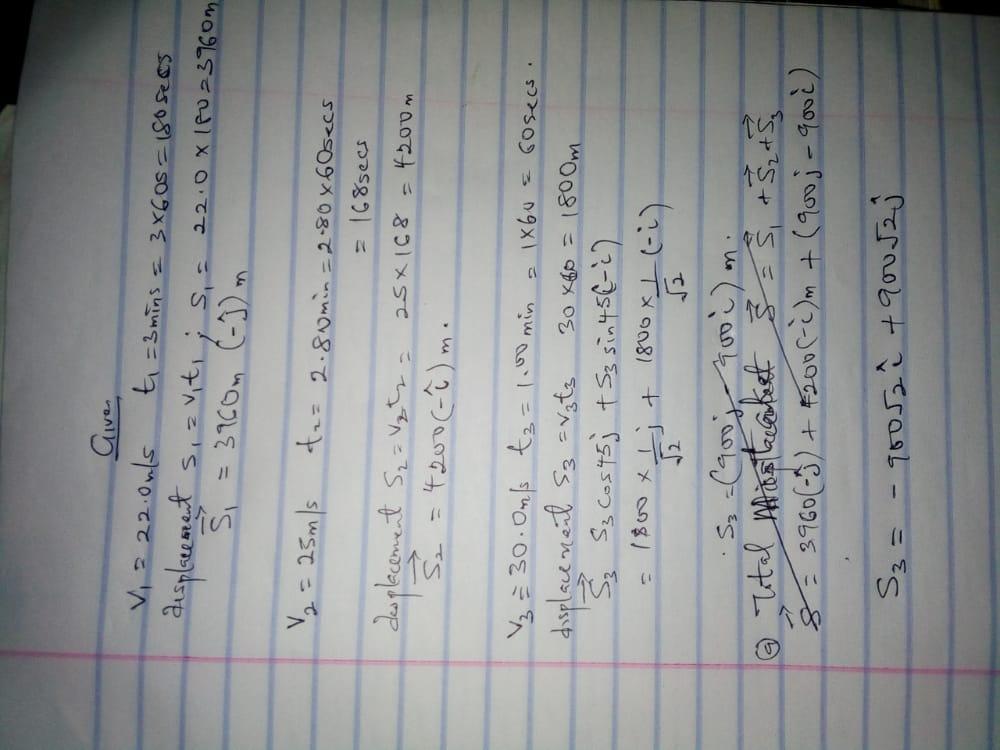 Given
V₁ = 22.0m/s t₁ = 3mins = 3×60s = 180secs
displacement S₁ = V₁t₁ ; S₁ = 22.0 × 180 = 3960m
S₁ = 3960m (-ĵ) m
V₂ = 25m/s t₂ = 2.80min = 2.80×60secs
= 168secs
displacement S₂ = V₂t₂ = 25×168 = 4200m
S₂ = 4200(-î) m.
V₃ = 30.0m/s t₃ = 1.00min = 1×60 = 60secs.
displacement S₃ = V₃t₃ 30×60 = 1800m
S₃ S₃cos45j + S₃sin45(-i)
= 1800 × 1/√2 j + 1800 × 1/√2 (-i)
. S₃ = (900j - 900i) m.
(a) Total = S₁ + S₂ + S₃
S = 3960(-j) + 4200(-i)m + (900j - 900i)
S₃ = - 900√2 i + 900√2 j